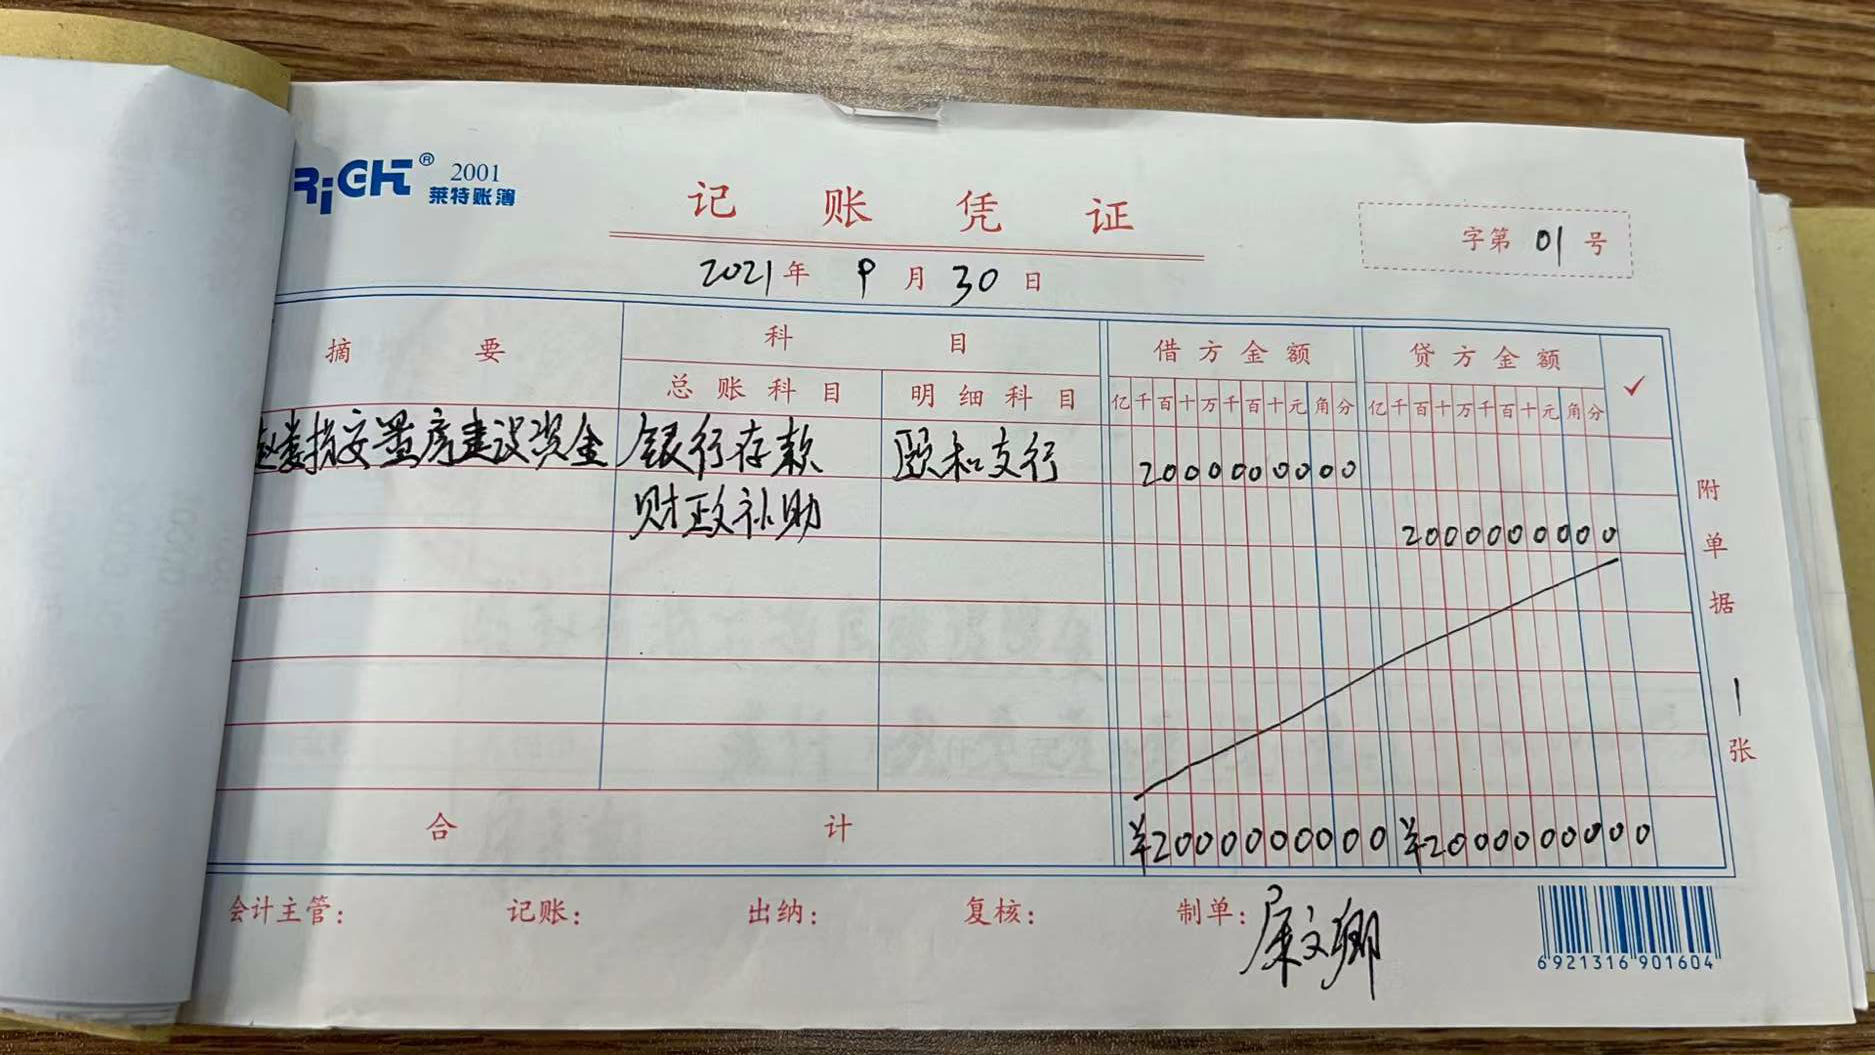 RiGHT® 2001
莱特账簿
记 账 凭 证
字第 01 号
2021 年 9 月 30 日
摘 要
科 目
借方金额
贷方金额
✓
总账科目
明细科目
亿千百十万千百十元角分
亿千百十万千百十元角分
安置房建设资金 银行存款 颐和支行 2000000000
财政补助 2000000000
附单据 1 张
合 计 ¥2000000000 ¥2000000000
会计主管: 记账: 出纳: 复核: 制单: 屈文卿
6 921316 901604